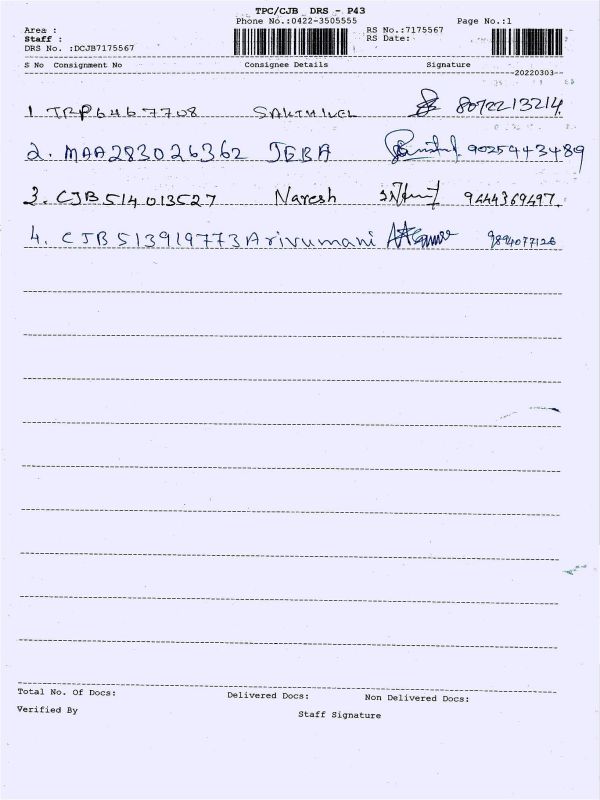 TPC/CJB DRS - P43
Phone No.:0422-3505555 Page No.:1
Area :
RS No.:7175567
Staff :
RS Date:
DRS No. :DCJB7175567
S No Consignment No Consignee Details Signature
--20220303--
1 TRP6467708 SAKTHIVEL 8072213214
2. MAA283026362 JEBA 9025443489
3. CJB514013527 Naresh 9444369497
4. CJB513919773 Arivumani 9894077126
Total No. Of Docs: Delivered Docs: Non Delivered Docs:
Verified By Staff Signature